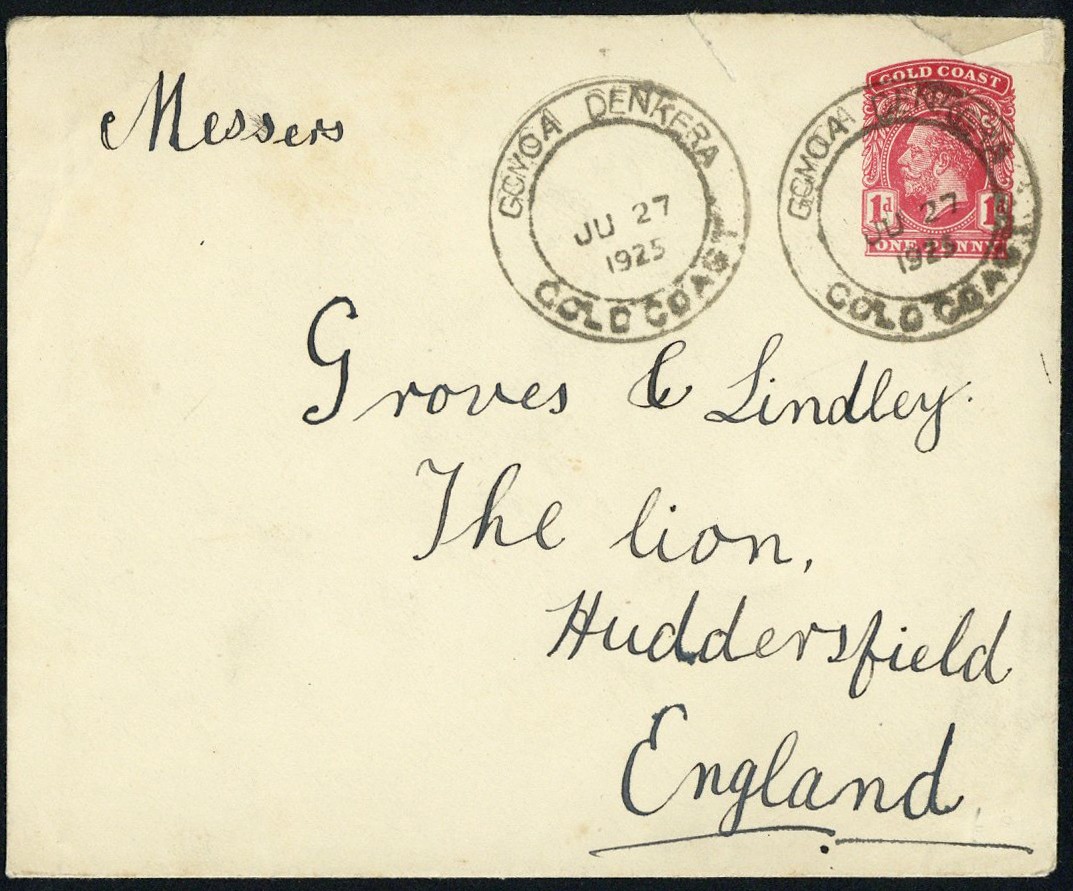 Messers
GOMOA DENKERA
JU 27
1925
GOLD COAST
GOLD COAST
1d 1d
ONE PENNY
GOMOA DENKERA
JU 27
1925
GOLD COAST
Groves & Lindley.
The lion,
Huddersfield
England